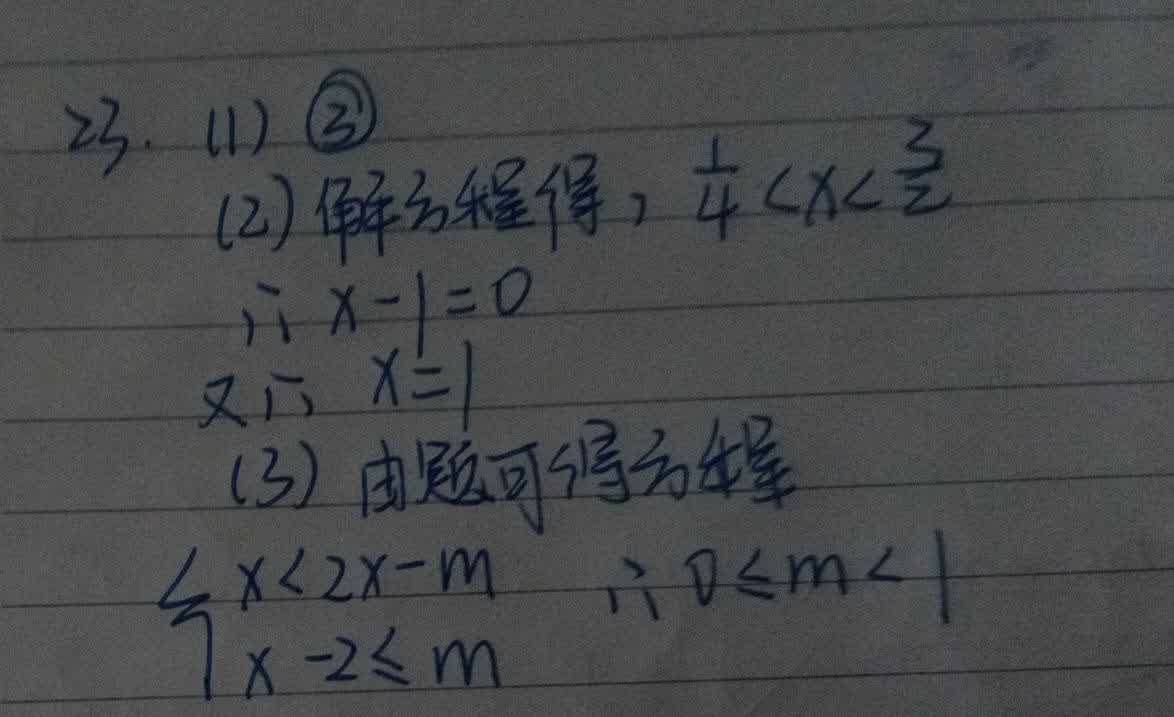 23. (1) ③
(2) 解方程得, 1/4 < x < 3/2
∴ x - 1 = 0
又∵ x = 1
(3) 由题可得方程
{ x < 2x - m ∴ 0 ≤ m < 1
x - 2 ≤ m